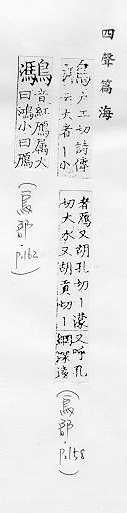 四聲篇海
鴻 戶工切詩傳
云大者曰鴻小
者鴈又胡孔切丨濛又呼孔
切大水又胡貢切丨絅深遠
(鳥部 p.158)
鴻 音紅鴈屬大
曰鴻小曰鴈
(鳥部 p.162)